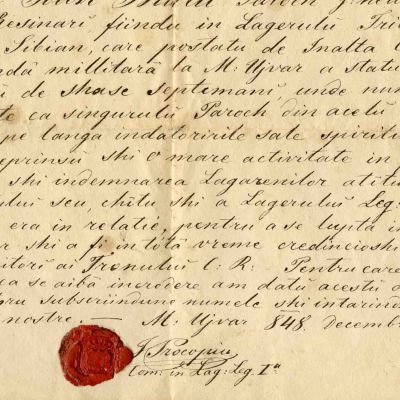 Resinari, fiindu in Lagerulu Tri
Sibian, care postatu de Inalta
ndă millitară la M: Ujvar a statu
ă de shase septemani, unde nu
te ca singurulu Paroch, din acelu
pe langa indatoririle sale spiritu
eprinsu shi o mare activitate in
shi indemnarea Lagarenilor atitu
ului seu, chîtu shi a Lagerului Leg:
era in relatie, pentru a se lupta in
r shi a fi in totă vreme credincioshi
itori ai Tronului C: R: Pentru care
ca se aibă incredere am datu acestu
tru subscriindune numele shi intarind
nostre. — M: Ujvar 848. Decemb
Procopiu
Com: in Lag: Leg. Iᵃ